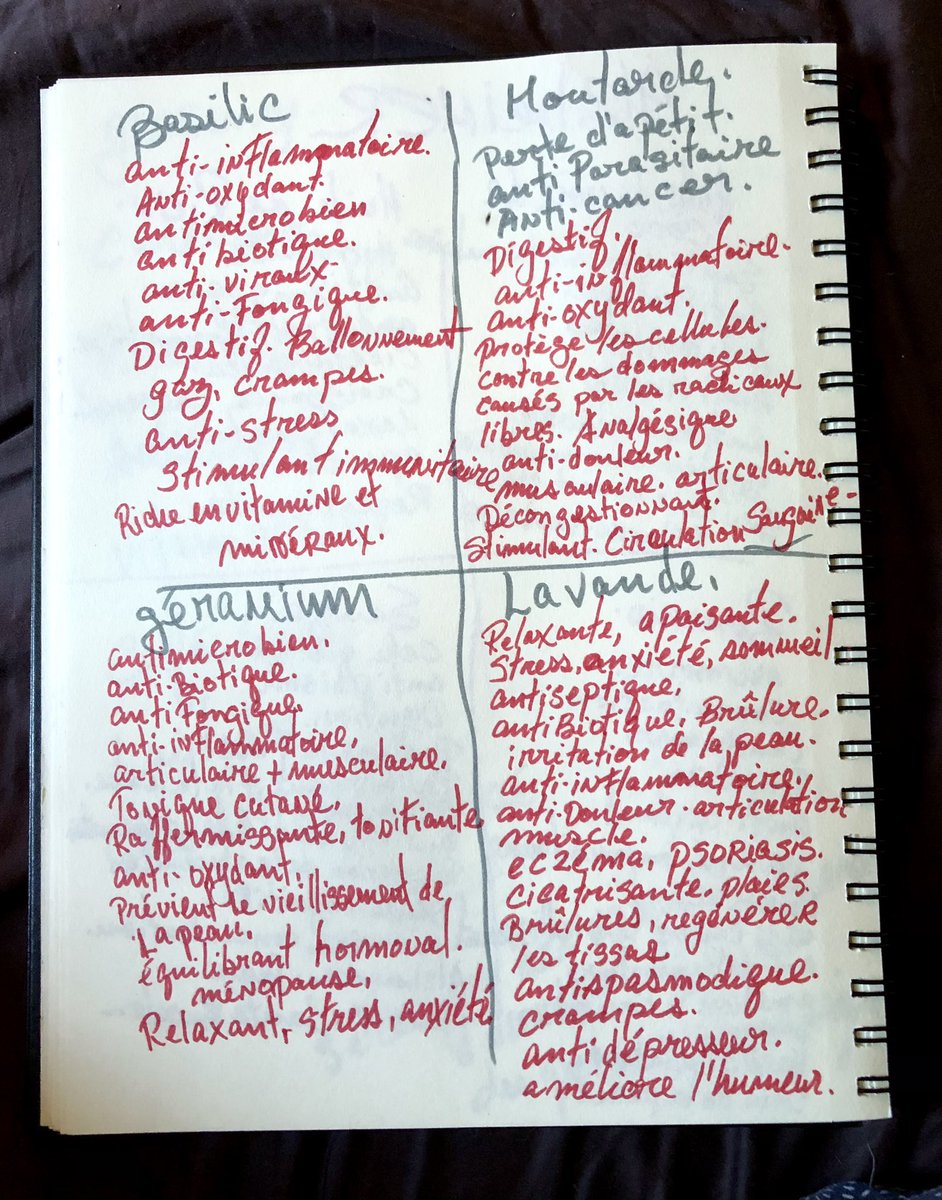 Basilic
anti-inflammatoire.
Anti-oxydant.
antimicrobien
antibiotique.
anti-viraux
anti-Fongique.
Digestif. Ballonnement
gaz, crampes.
anti-stress
Stimulant immunitaire
Riche en vitamine et
minéraux.
Moutarde.
perte d'apétit.
anti Parasitaire
Anti-cancer.
Digestif.
anti-inflammatoire.
anti-oxydant.
protège les cellules.
contre les dommages
causés par les radicaux
libres. Analgésique
anti-douleur.
musculaire. articulaire.
Décongestionnant.
Stimulant. Circulation Sanguine-
géranium
antimicrobien.
anti-Biotique
anti Fongique.
anti-inflammatoire,
articulaire + musculaire.
Tonique cutané,
Raffermissante, tonifiante
anti-oxydant,
Prévient le vieillissement de
La peau.
Équilibrant hormonal.
ménopause,
Relaxant, stress, anxiété
Lavande.
Relaxante, apaisante.
Stress, anxiété, sommeil
antiseptique.
antiBiotique. Brûlure.
irritation de la peau.
anti-inflammatoire.
anti-Douleur. articulation
muscle.
eczéma, psoriasis.
cicatrisante. plaies.
Brûlures, regénérer
les tissus
antispasmodique.
crampes.
antidépresseur.
améliore l'humeur.